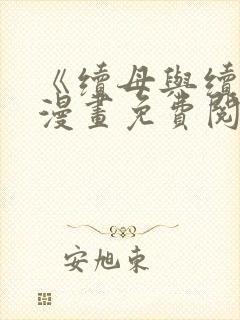 《續母與續
漫畫免費閱
安旭東